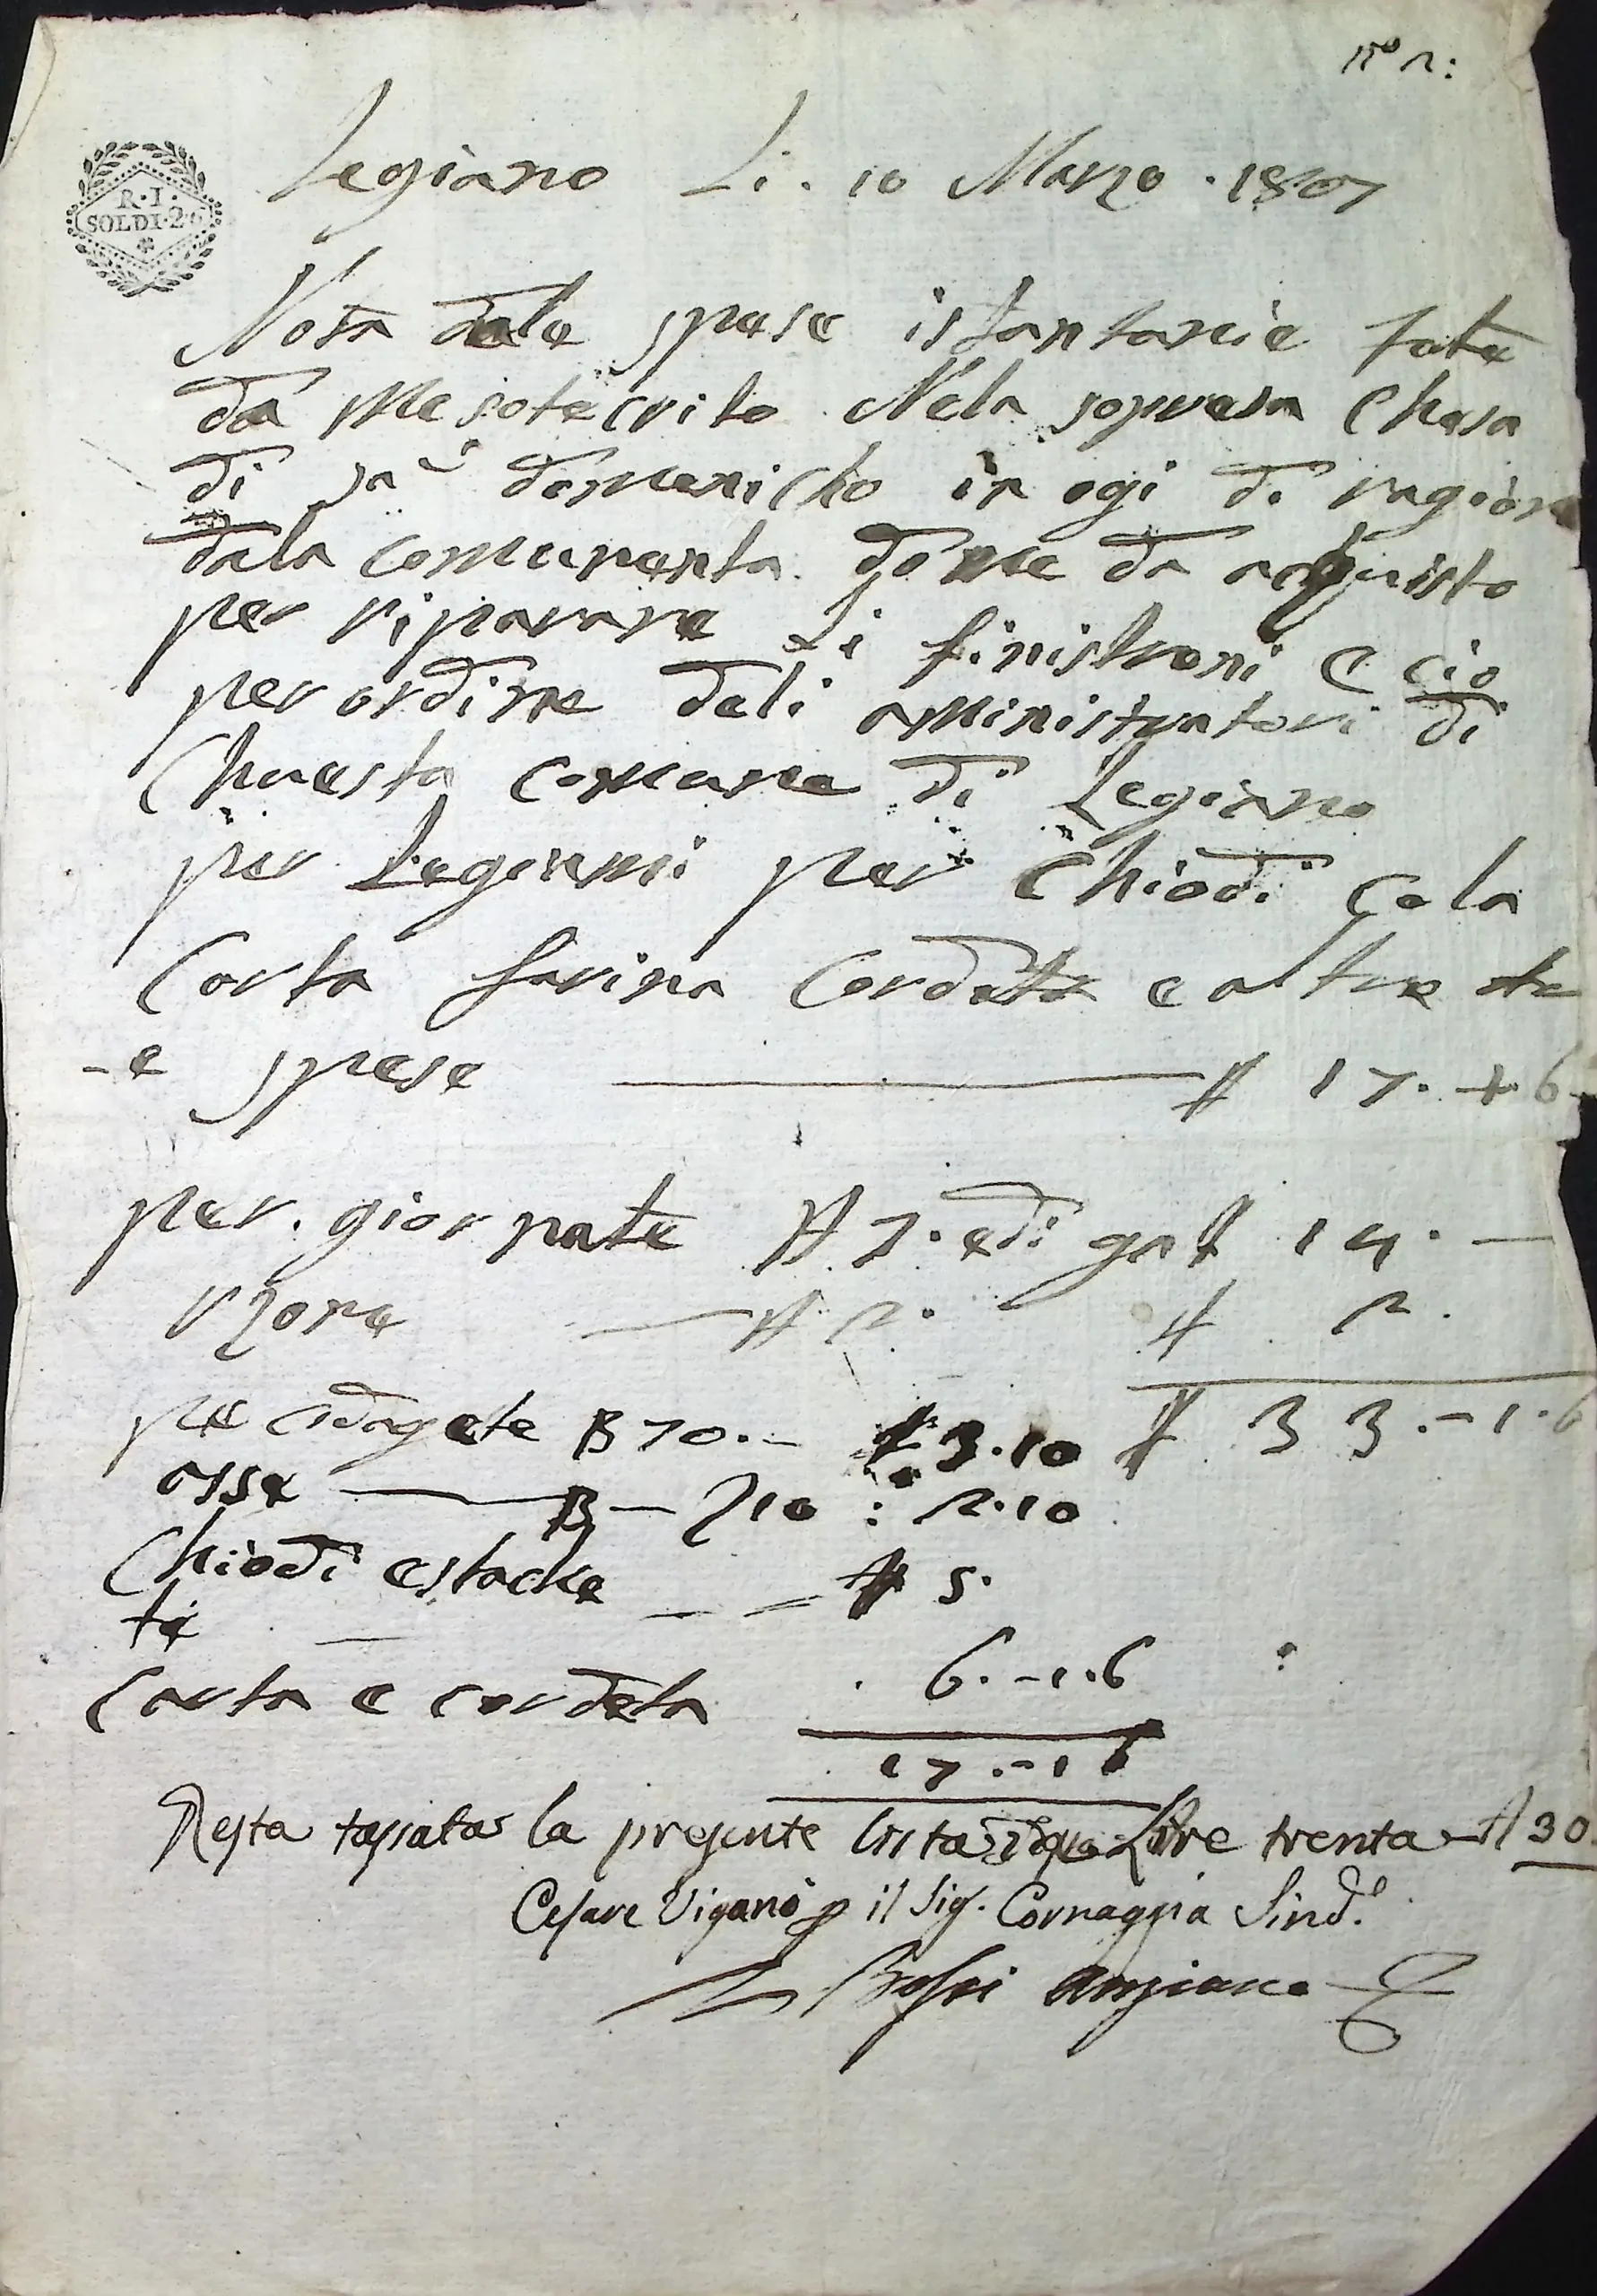 N° 2:
R. I.
SOLDI. 26
Legiano Li. 10 Marzo. 1807
Nota dele spese istantanie fate
da Me sotecrito Nela sopresa Chasa
di Sa domenicho in ogi di ragione
dala comunenta. dome da acquisto
per riparare Li finistroni e cio
per ordine deli aministratori di
Chuesta comune di Legiano
per Legiemi per Chiodi cola
Carta farina Cordete e altre
-e spese 17. 6
per. giornate N 7. edi ga 14. —
N 2. 2.
pe 70. - 3.10 33. - 1. 6
asse — 10 : 2.10
Chiodi estache
te 5.
6. - 1. 6
Carta e cordeta
17. - 1 6
Resta tassata la presente lista Lire trenta 30.
Cesare Viganò p il Sig. Cornaggia Sind.
Bossi Anziano